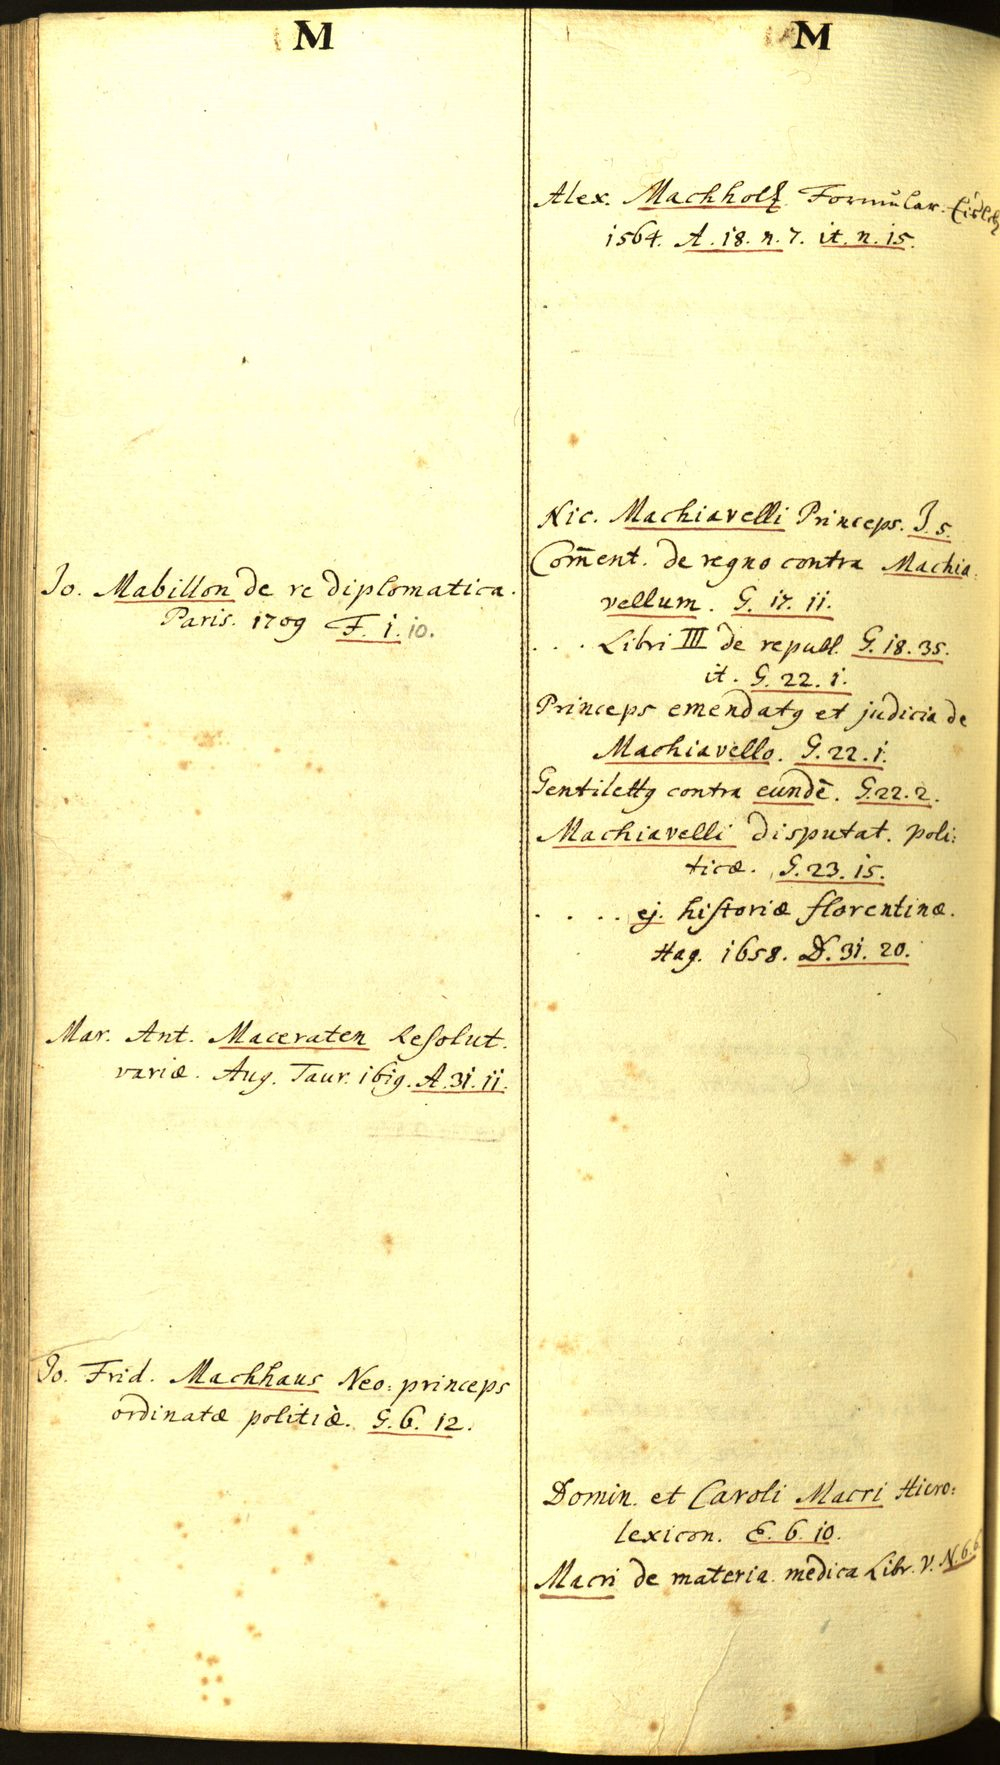 M
Jo. Mabillon de re diplomatica.
Paris. 1709 F. 1. 10.
Mar. Ant. Maceraten Resolut.
variæ. Aug. Taur. 1619. A. 31. 11.
Jo. Frid. Machhaus Neo: princeps
ordinatæ politiæ. G. 6. 12.
M
Alex. Machholt Formular.
1564. A. 18. n. 7. it. n. 15.
Nic. Machiavelli Princeps. J. 5.
Com̄ent. de regno contra Machia:
vellum. G. 17. 11.
. . . Libri III de republ. G. 18. 35.
it. G. 22. 1.
Princeps emendatꝰ et judicia de
Machiavello. G. 22. 1.
Gentilettꝰ contra eundē. G. 22. 2.
Machiavelli disputat. poli:
ticæ. G. 23. 15.
. . . . ej. historiæ florentinæ.
Hag. 1658. D. 31. 20.
Domin. et Caroli Macri Hiero:
lexicon. E. 6. 10.
Macri de materia medica Libr. V. N. 6. 6